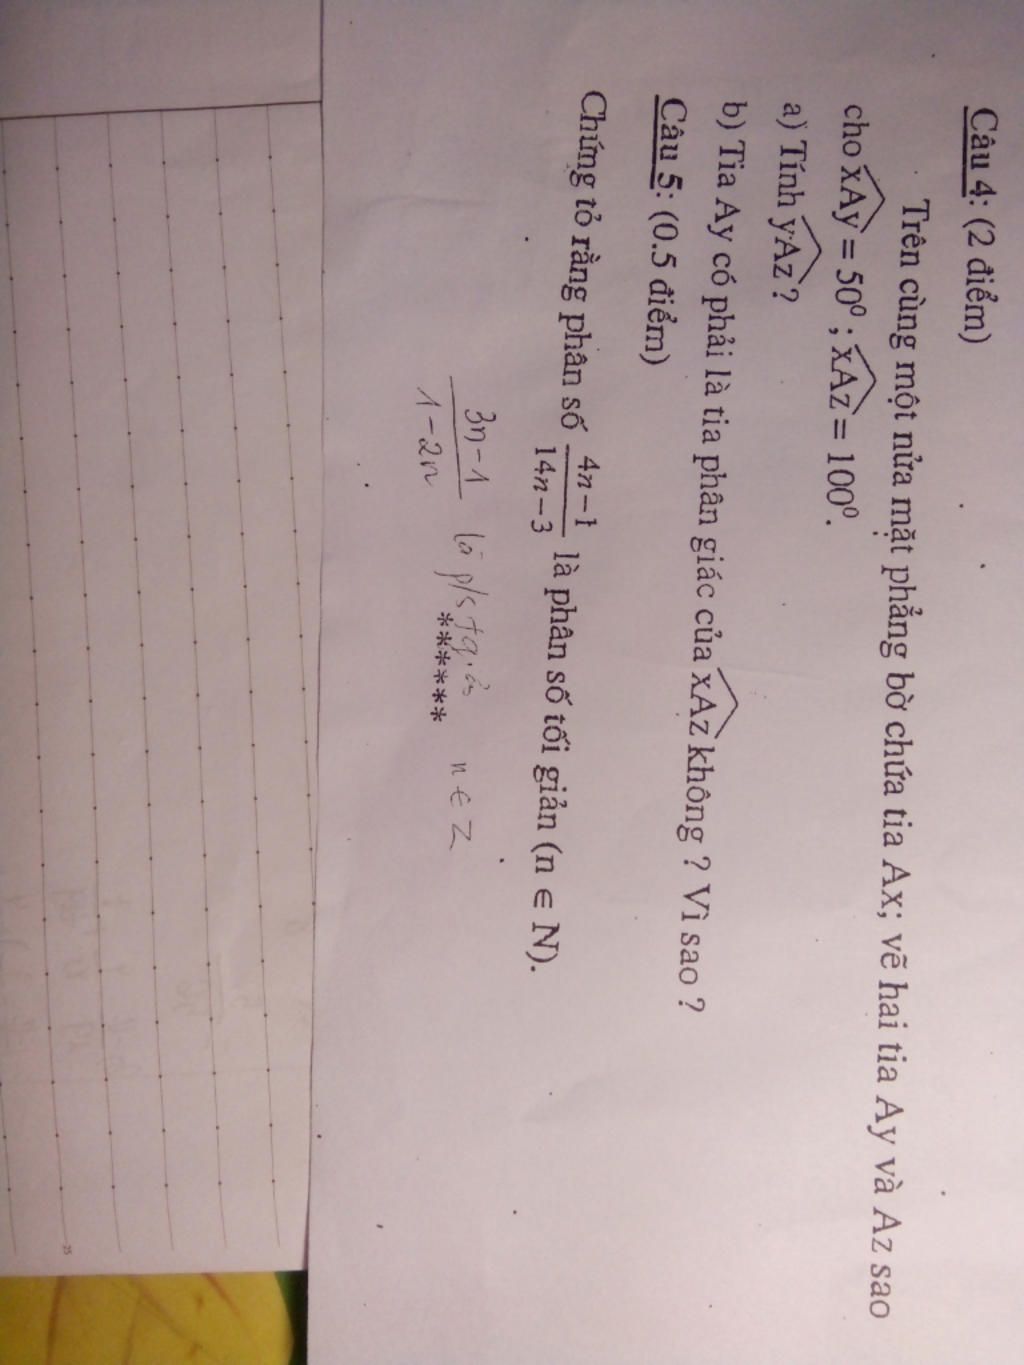 Câu 4: (2 điểm)
Trên cùng một nửa mặt phẳng bờ chứa tia Ax; vẽ hai tia Ay và Az sao
cho xAy = 50⁰ ; xAz = 100⁰.
a) Tính yAz ?
b) Tia Ay có phải là tia phân giác của xAz không ? Vì sao ?
Câu 5: (0.5 điểm)
Chứng tỏ rằng phân số (4n−1)/(14n−3) là phân số tối giản (n ∈ N).
(3n−1)/(1−2n) là p/s n ∈ Z
******
25